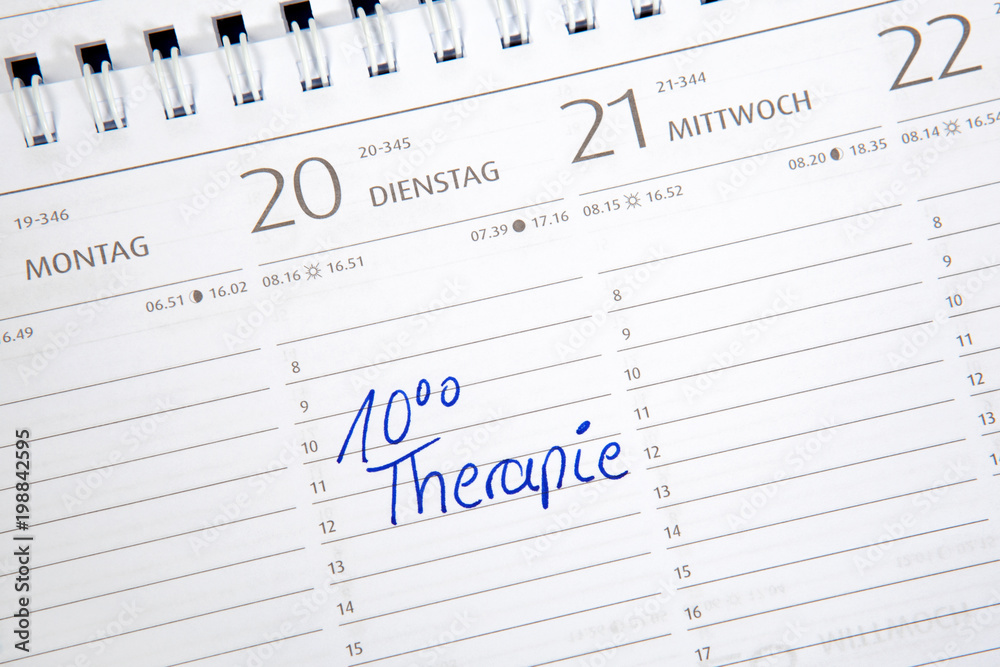 19-346
MONTAG
6.49
06.51 16.02
20
20-345
DIENSTAG
08.16 16.51
07.39 17.16
21
21-344
MITTWOCH
08.15 16.52
08.20 18.35
22
08.14 16.54
8
9
10
11
12
13
14
15
10⁰⁰
Therapie
8
9
10
11
12
13
14
15
16
17
8
9
10
11
12
13
Adobe Stock | #198842595